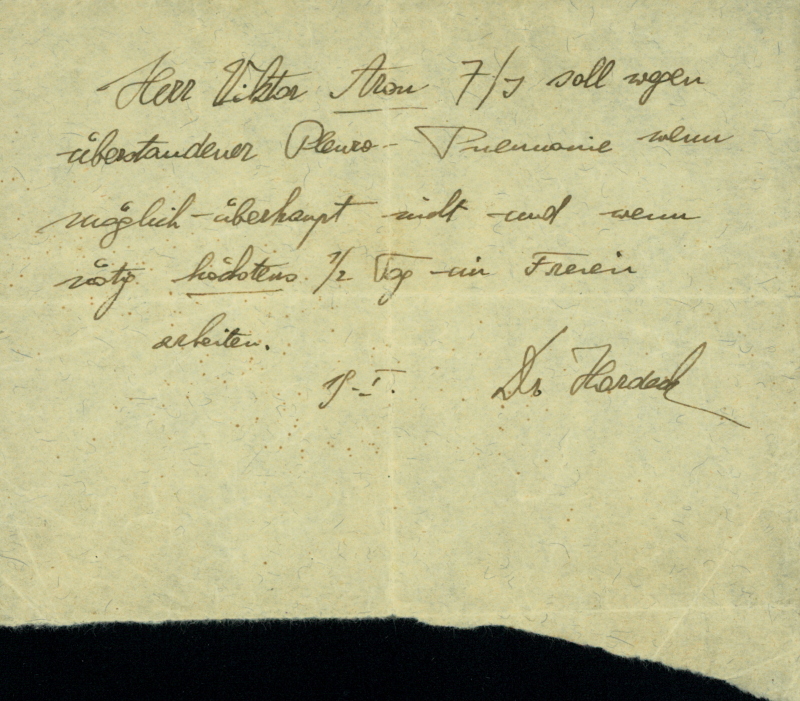 Herr Viktor Aron 7/J soll wegen
überstandener Pleuro- Pneumonie wenn
möglich überhaupt nicht und wenn
nötig höchstens 1/2 Tag im Freien
arbeiten.
Dr.